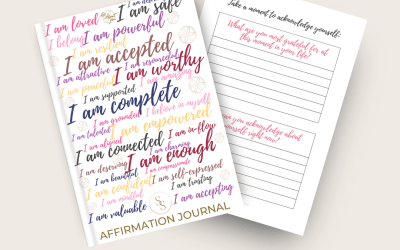 I am loved I am safe
I belong I am powerful
I am resilient
I am accepted
I am attractive I am resourceful
I am peaceful I am worthy
I am supported I am amazing
I am complete
I am grounded I believe in myself
I am talented I am empowered
I am aligned I am in-flow
I am connected I am charming
I am deserving I am enough
I am beautiful I am compassionate
I am confident I am self-expressed
I am mindful I am trusting
I am valuable I am accepting
AFFIRMATION JOURNAL
Take a moment to acknowledge yourself:
What are you most grateful for at
this moment in your life?
you acknowledge about
yourself right now?